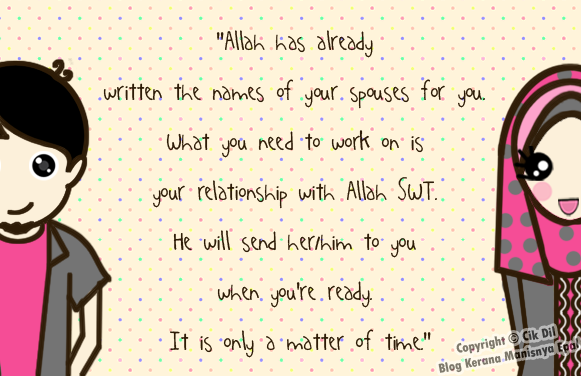 "Allah has already
written the names of your spouses for you.
What you need to work on is
your relationship with Allah SWT.
He will send her/him to you
when you're ready.
It is only a matter of time."
Copyright © Cik Dil
Blog Kerana Manisnya Epal